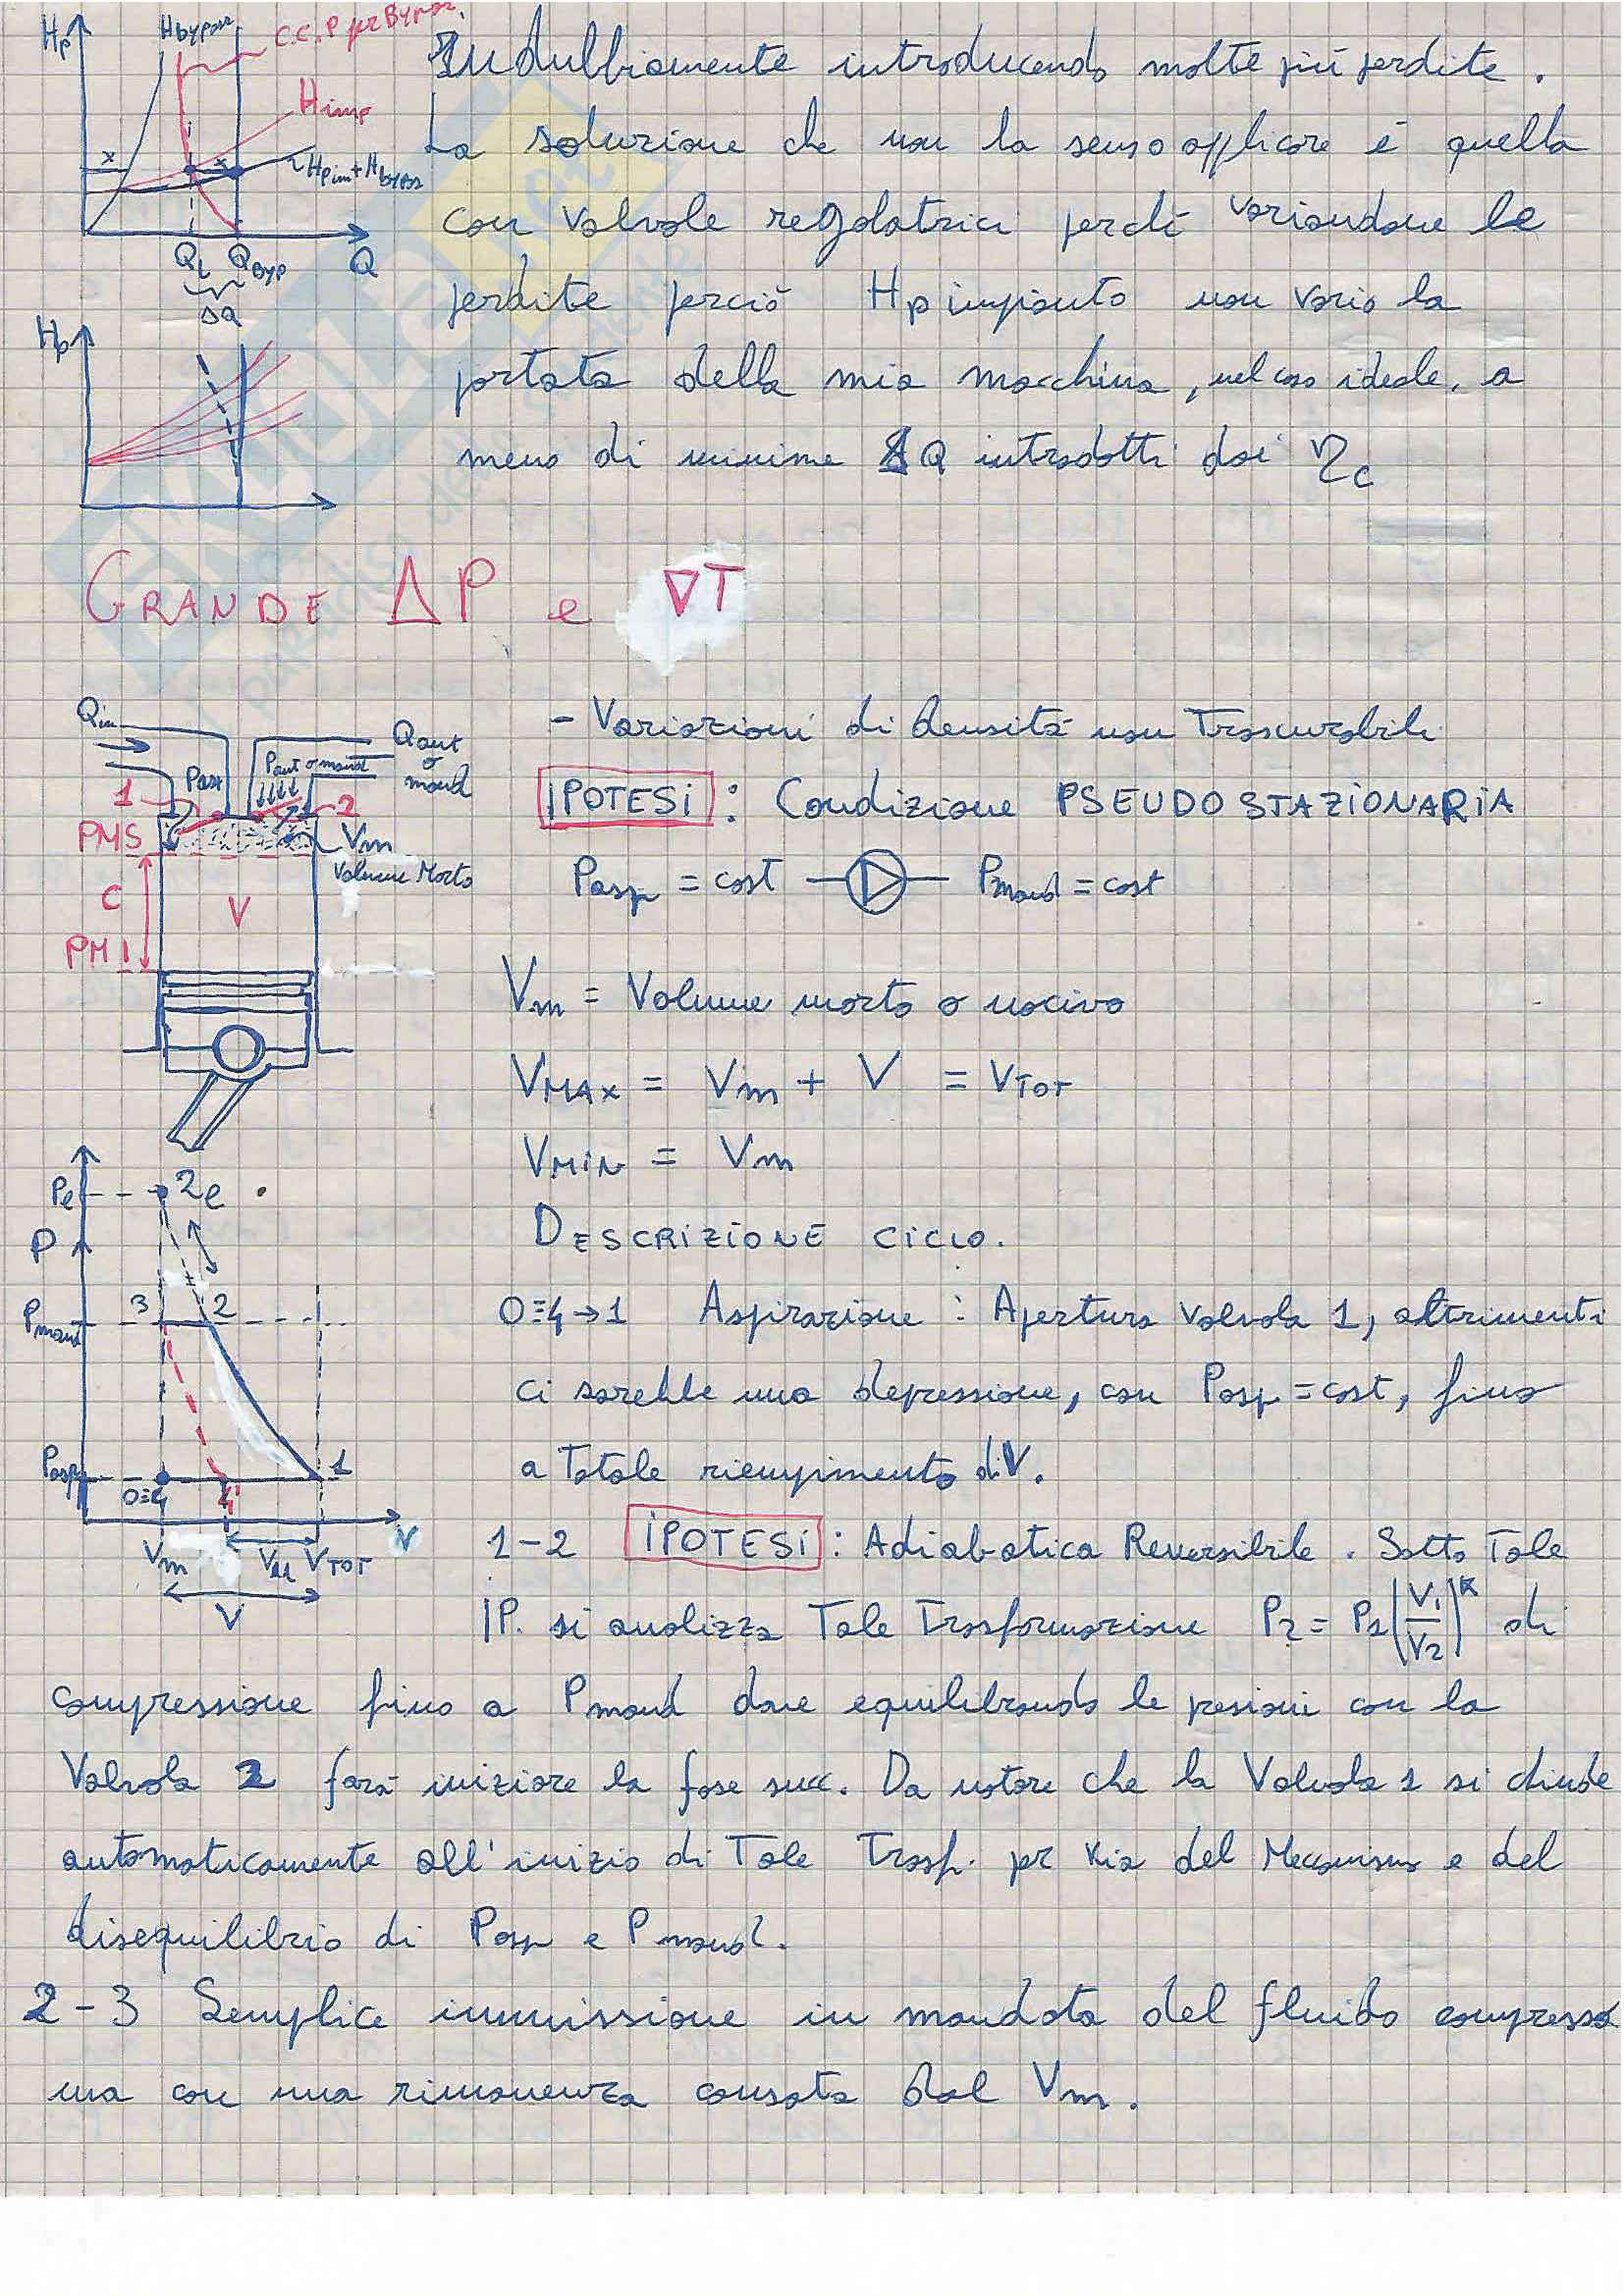 Hp
Hbypass
C.C.P per Bypass.
Himp
Hp im + Hbypass
x
x
QL
QByp
Q
ΔQ
Indubbiamente introducendo molte più perdite.
La soluzione che non ha senso applicare è quella
con valvole regolatrici perchè variandone le
perdite perciò Hp impianto non vario la
portata della mia macchina, nel caso ideale, a
meno di minime ΔQ introdotti dai ηc
Hp
GRANDE ΔP e ∇T
Qin
Pasp
Pout o mand
Qout
o
mand
1
2
PMS
Vm
Volume Morto
C
V
PMI
- Variazioni di densità non Trascurabili
IPOTESI: Condizione PSEUDO STAZIONARIA
Pasp = cost Pmand = cost
Vm = Volume morto o nocivo
VMAX = Vm + V = VTOT
VMIN = Vm
DESCRIZIONE CICLO.
Pe
2e
P
3
2
Pmand
Pasp
0≡4
4'
1
V
Vm
VTOT
V
0≡4→1 Aspirazione: Apertura Valvola 1, altrimenti
ci sarebbe una depressione, con Pasp = cost, fino
a Totale riempimento di V.
1-2 IPOTESI: Adiabatica Reversibile. Sotto Tale
IP. si analizza Tale Trasformazione P2 = P1 (V1/V2)^K di
compressione fino a Pmand dove equilibrando le pesioni con la
Valvola 2 farà iniziare la fase succ. Da notare che la Valvola 1 si chiude
automaticamente all'inizio di Tale Trasf. per via del Meccanismo e del
disequilibrio di Pasp e Pmand.
2-3 Semplice immissione in mandata del fluido compresso
ma con una rimanenza causata dal Vm.